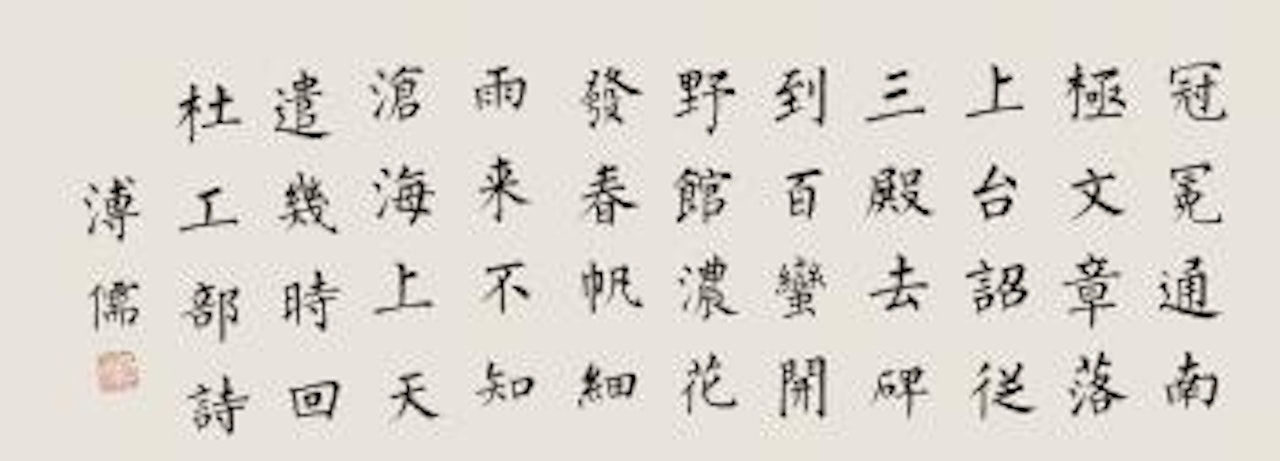 冠冕通南
極文章落
上台詔従
三殿去碑
到百蠻開
野館濃花
發春帆細
雨来不知
滄海上天
遣幾時回
杜工部詩
溥儒